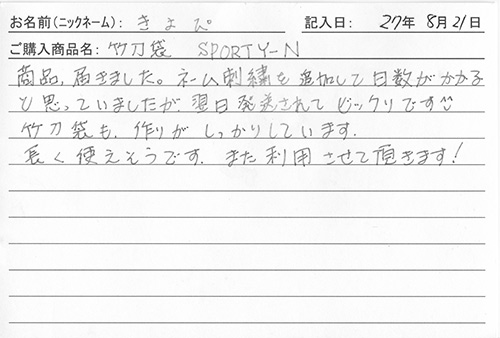 お名前(ニックネーム): きょぴ 記入日: 27年 8月21日
ご購入商品名: 竹刀袋 SPORTY-N
商品、届きました。ネーム刺繍を追加して日数がかかる
と思っていましたが翌日発送されてビックリです
竹刀袋も、作りがしっかりしています。
長く使えそうです。また利用させて頂きます!